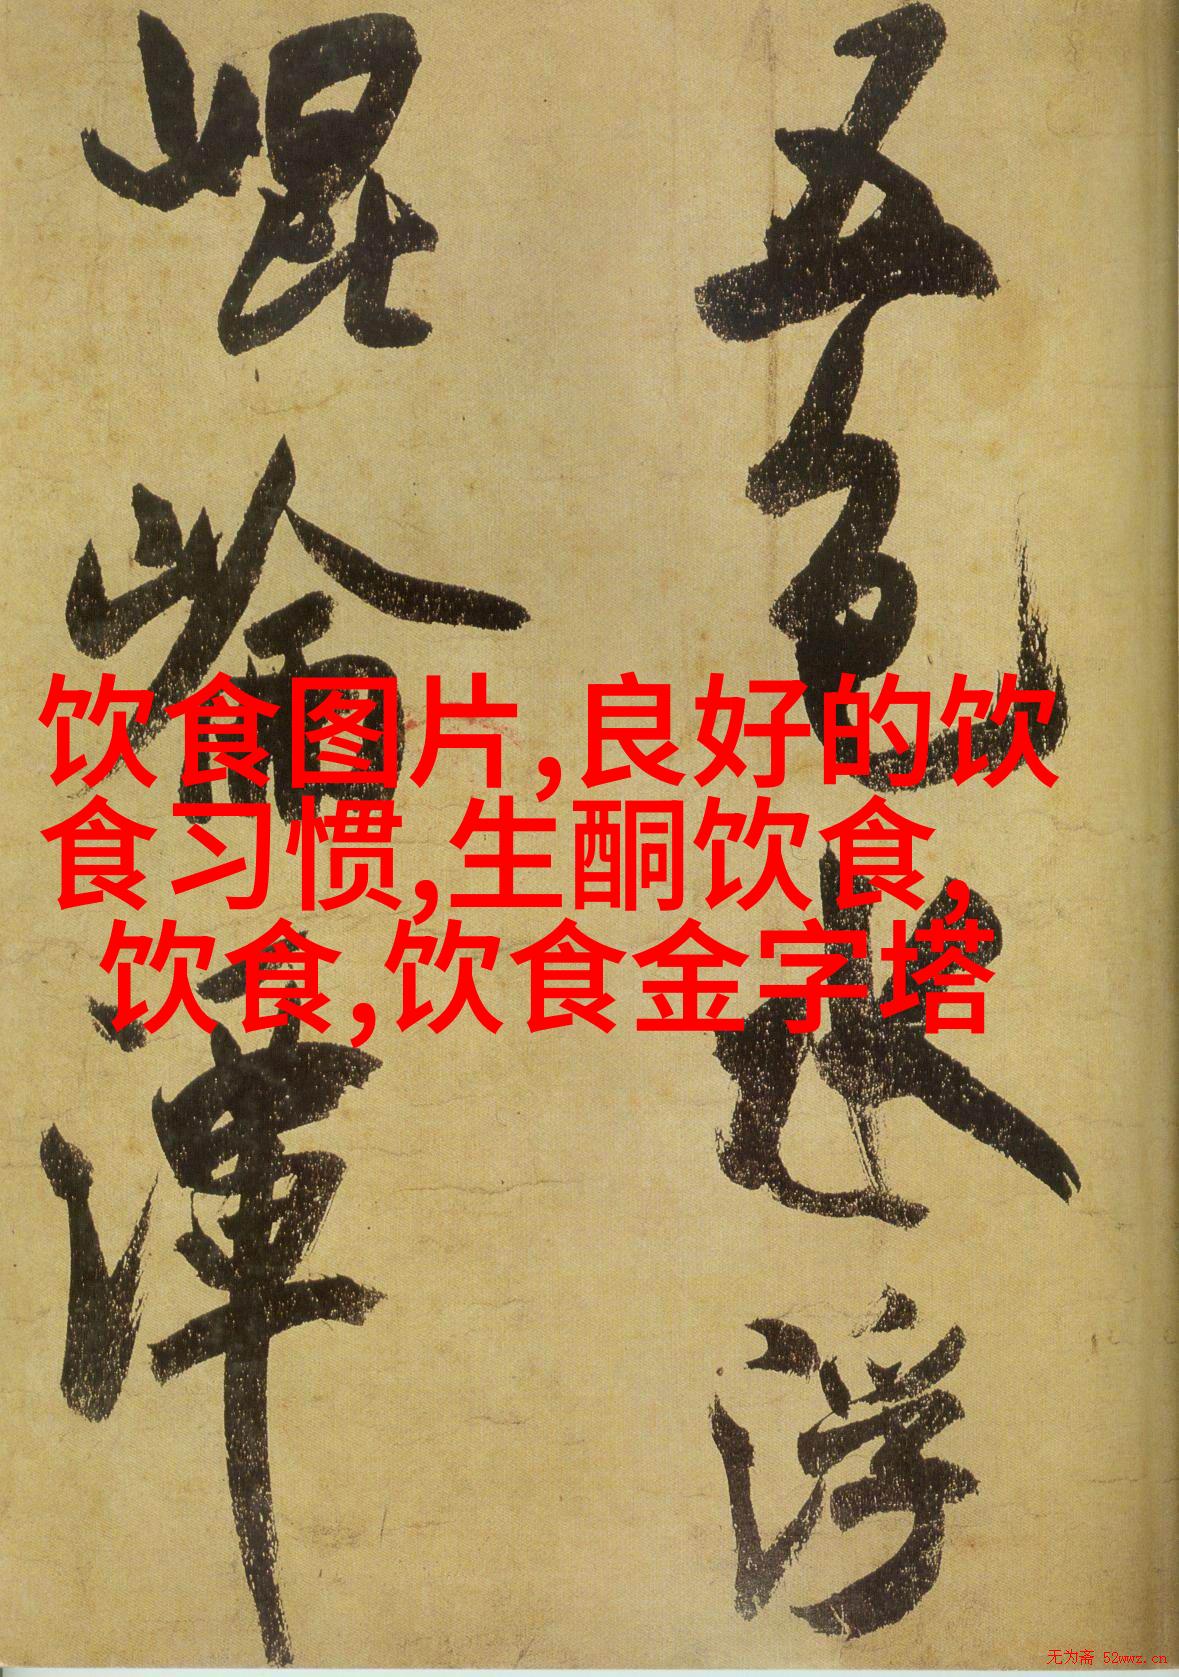 五色水浮
崐崘潭
饮食图片,良好的饮
食习惯,生酮饮食,
饮食,饮食金字塔
无为斋 52wwz.cn